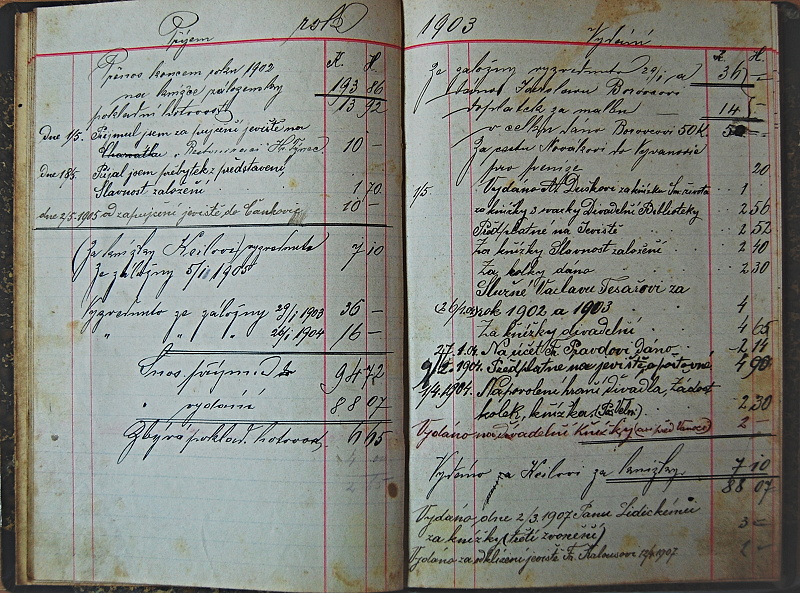 Příjem roků
K. H.
Přenos koncem roku 1902
na knížce záloženský 193 86
pokladní hotovost 13 92
Dne 1/5. Přijmul jsem za pujčení jeviště na
v Restauraci Hr. Týnec. 10 —
Dne 18/5. Přijal jsem přebytek z představení
Slavnost založení 1 70
dne 2/5 1905 od zapujčení jeviště do Čankovic 10 —
Za knížky Keilovi vyzvednuto 7 10
Ze záložny 5/II 1905
Vyzvednuto ze záložny 29/I 1903 36 —
" " " 26/I 1904 16 —
Snos příjmů 94 72
" vydání 88 07
Zbývá poklad. hotovost 6 65
1903
Vydání
K. H.
Ze záložny vyzvednuto 29/I a
Boroveovi 36 —
doplatek za malbu 14 —
v celku dáno Borovcovi 50 K. 50
Za cestu Novákovi do
pro peníze 20
1/5 Vydáno Duškovi za knížku 1
za knížky svazky Divadelní Biblioteky 2 56
Předplatné na Jeviště 2 52
Za knížky Slavnost založení 2 40
Za kolky dáno 2 30
Služné Václavu Tesařovi za
rok 1902 a 1903 4
Za knížky divadelní 4 65
27. 1. 04. Na účet Fr. Pravdovi dáno 2 14
1904. Předplatné na jeviště a poštovné 4 90
1/4. 1904. Na povolení hraní divadla, žádost
kolek, knížka 2 30
Vydáno na divadelní knížky 2 —
Vydáno za Keilovi za knížky 7 10
88 07
Vydáno dne 2/3. 1907 Panu Lidickému
za knížky (třetí zvonění) 3 —
Vydáno za odklizení jeviště Fr. Kalousovi 1907 2 —